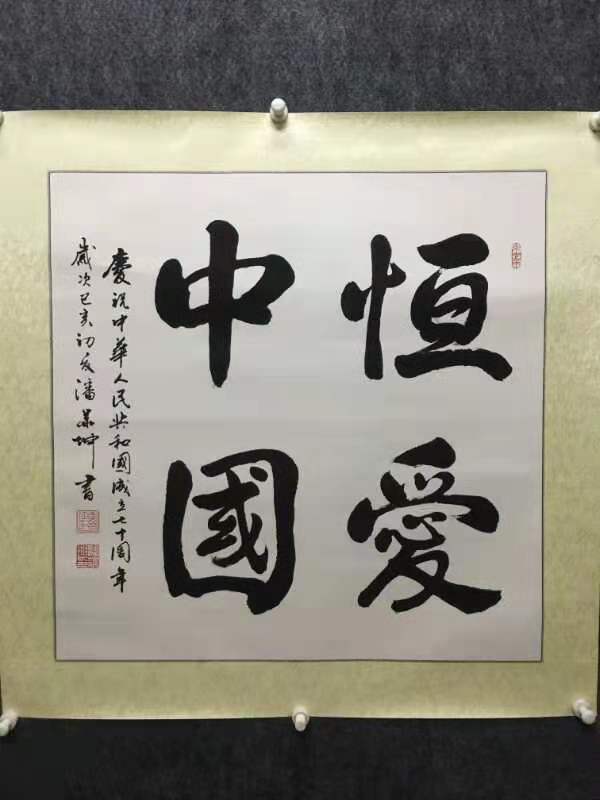 恒愛
中國
慶祝中華人民共和國成立七十周年
歲次己亥初夏潘景坤書